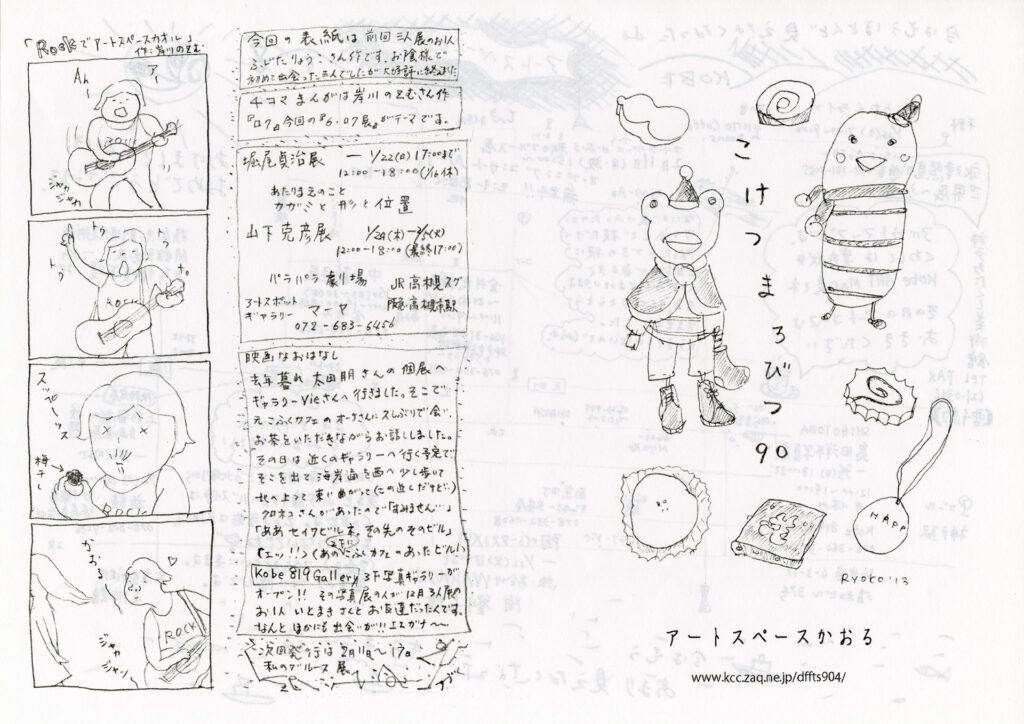 「Rockでアートスペースカオル」
作:岸川のぞむ
Ah
アー
ROCK
ジャカ
ジャカ
トゥ
トゥ
ROCK
スッパーッス
梅干し
ROCK
かお
ROCK
ジャカ
ジャーン
今回の表紙は前回三人展のお1人
ふじたりょうこさん作です。お陰様で
初めて出会った三人でしたが大好評に終りました
4コマまんがは岸川のぞむさん作
『ロク』今回の『6.07展』がテーマです。
堀尾貞治展 ー 1/22(日)17:00まで
12:00-18:00(1/16休)
あたりまえのこと
カガミと形と位置
山下克彦展 1/29(木)ー2/3(火)
12:00-18:00(最終17:00)
パラパラ劇場 JR高槻スグ
アートスポット
ギャラリー マーヤ 阪急高槻市駅
072-683-6456
映画なおはなし
去年暮れ 太田朋さんの個展へ
ギャラリーVieさんへ行きました。そこで
元こふくカフェのオークさんに久しぶりで会い、
お茶をいただきながらお話ししました。
その日は近くのギャラリーへ行く予定で
そこを出て海岸通を西へ少し歩いて
北へ上って東に曲がって(この近しだけど…)
クロネコさんがあったので「すみません…」
「ああ、セイワビル本、その先のそのビル」
(エッ!!)(あのこふくカフェのあったビル)
Kobe 819 Gallery 3F 写真ギャラリーが
オープン!! その写真展の人が12月3人展の
お1人いとまきさんとお友達だったんです。
なんとほかにも出会いが!! エスガナ〜
次回発行は2月11日〜17日
私のブルース展
こけつまろびつ90
HAPP
RYOKO '13
アートスペースかおる
www.kcc.zaq.ne.jp/dffts904/